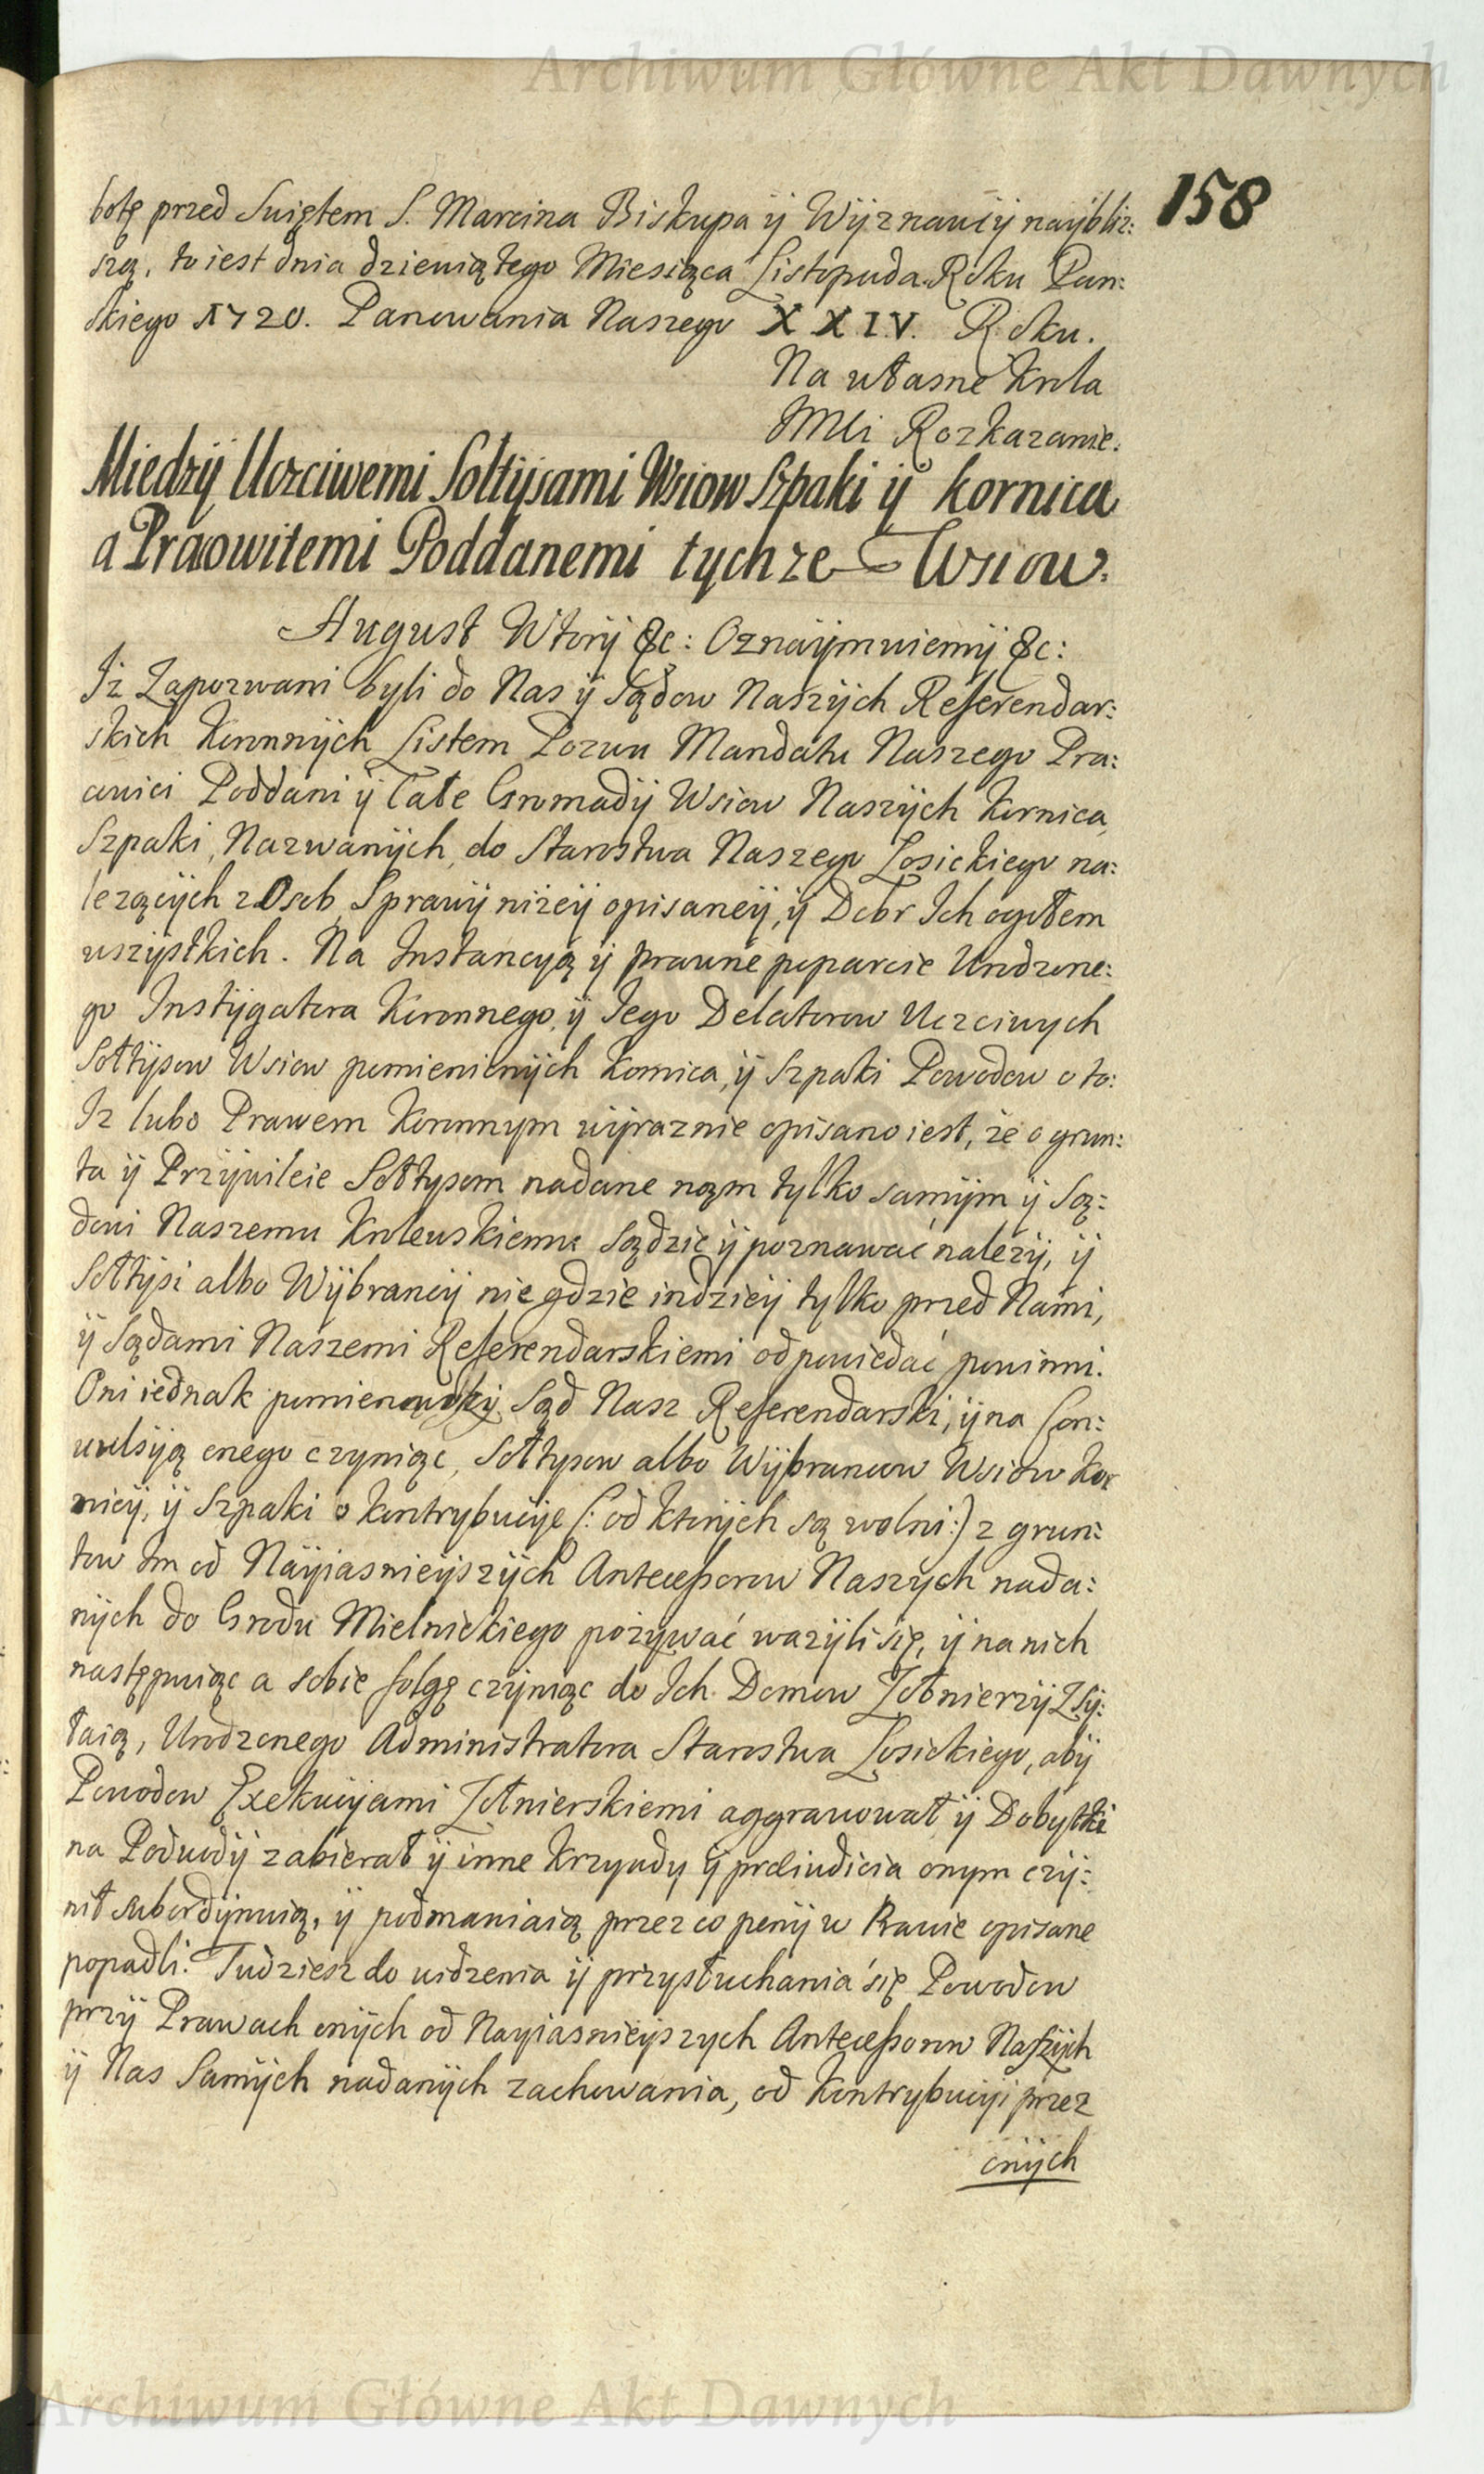 Archiwum Główne Akt Dawnych
158
botę przed Swiętem S. Marcina Biskupa ÿ Wÿznawcÿ naÿbliz:
szą, to iest dnia dziewiątego Miesiąca Listopada Roku Pan:
skiego 1720. Panowania Naszego XXIV. Roku.
Na własne Krola
Mci Rozkazanie.
Miedzÿ Uczciwemi Soltÿsami Wsiow Szpaki ÿ Kornica
a Pracowitemi Poddanemi tychze Wsiow.
August Wtorÿ &c: Oznaÿmuiemÿ &c:
Iz Zapozwani byli do Nas ÿ Sądow Naszÿch Referendar:
skich Koronnÿch Listem Pozwu Mandatu Naszego Pra:
cowici Poddani ÿ Całe Gromadÿ Wsiow Naszÿch Kornica,
Szpaki, Nazwanÿch, do Starostwa Naszego Łosickiego na:
lezącÿch z Osob, Sprawÿ nizeÿ opisaneÿ, ÿ Dobr Ich ogołem
wszÿstkich. Na Instancyą ÿ prawne poparcie Urodzone:
go Instÿgatora Koronnego, ÿ Iego Delatorow Uczciwych
Sołtÿsow Wsiow pomienionÿch Kornica, ÿ Szpaki Powodow o to:
Iz lubo Prawem Koronnym wÿraznie opisano iest, że o grun:
ta ÿ Przÿwileie Sołtysom nadane nąm tylko samÿm ÿ Są:
dowi Naszemu Krolewskiemu Sądzic ÿ poznawać nalezÿ, ÿ
Sołtÿsi albo Wÿbrancÿ nie gdzie indzieÿ tylko przed Nami,
ÿ Sądami Naszemi Referendarskiemi odpowiedać powinni.
Oni iednak Sąd Nasz Referendarski, ÿ na Con:
wulsÿą onego czyniąc, Sołtysow albo Wÿbrancow Wsiow Kor
nicÿ, ÿ Szpaki o kontrybucÿe (: od ktorÿch są wolni:) z grun:
tow Im od Naÿiasnieÿszÿch Antecessorow Naszych nada:
nÿch do Grodu Mielnickiego pozywać wazÿli się, ÿ na nich
następuiąc a sobie folgę czÿniąc do Ich Domow Zołnierzÿ Zsÿ:
łaią, Urodzonego Administratora Starostwa Łosickiego, abÿ
Powodow Exekucÿami Zołnierskiemi aggrawował ÿ Dobytki
na Podwodÿ zabierał ÿ inne Krzywdy ÿ preiudicia onym czÿ:
nił subordÿnuią, ÿ podmaniaią przez co penÿ w Prawie opisane
popadli. Tudziesz do widzenia ÿ przysłuchania się Powodow
przÿ Prawach onÿch od Nayiasnieÿszych Antecessorow Naszÿch
ÿ Nas Samÿch nadanÿch zachowania, od Kontrybucÿi przez
onÿch
Archiwum Główne Akt Dawnych